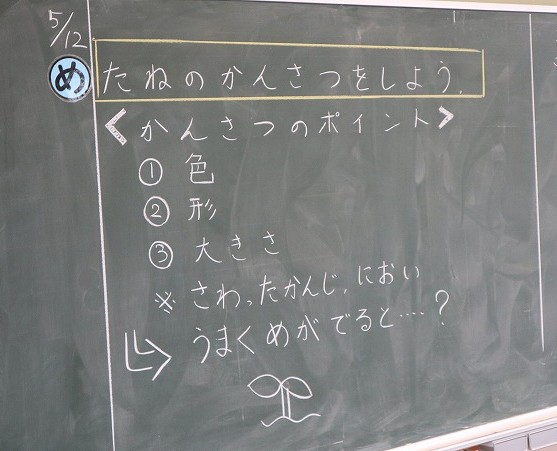 5/12
め たねのかんさつをしよう.
<かんさつのポイント>
① 色
② 形
③ 大きさ
※ さわったかんじ,におい
うまくめがでると‥‥?